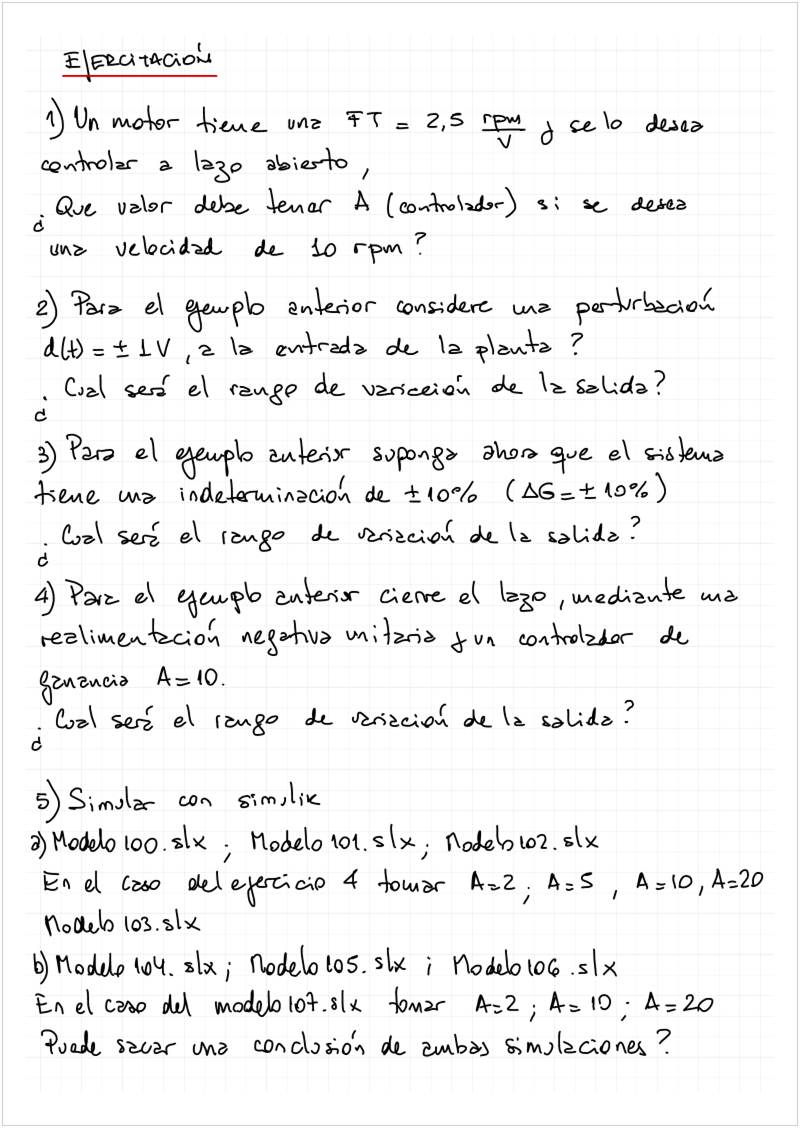 EJERCITACIÓN
1) Un motor tiene una FT = 2,5 rpm/V y se lo desea
controlar a lazo abierto,
¿Que valor debe tener A (controlador) si se desea
una velocidad de 10 rpm?
2) Para el ejemplo anterior considere una perturbación
d(t) = ± 1V, a la entrada de la planta?
¿Cual será el rango de variación de la salida?
3) Para el ejemplo anterior suponga ahora que el sistema
tiene una indeterminación de ±10% (ΔG = ± 10%)
¿Cual será el rango de variación de la salida?
4) Para el ejemplo anterior cierre el lazo, mediante una
realimentación negativa unitaria y un controlador de
ganancia A = 10.
¿Cual será el rango de variación de la salida?
5) Simular con simulik
a) Modelo 100.slx ; Modelo 101.slx ; Modelo 102.slx
En el caso del ejercicio 4 tomar A=2 ; A=5 , A=10 , A=20
Modelo 103.slx
b) Modelo 104.slx ; Modelo 105.slx ; Modelo 106.slx
En el caso del modelo 107.slx tomar A=2 ; A=10 ; A=20
Puede sacar una conclusión de ambas simulaciones?